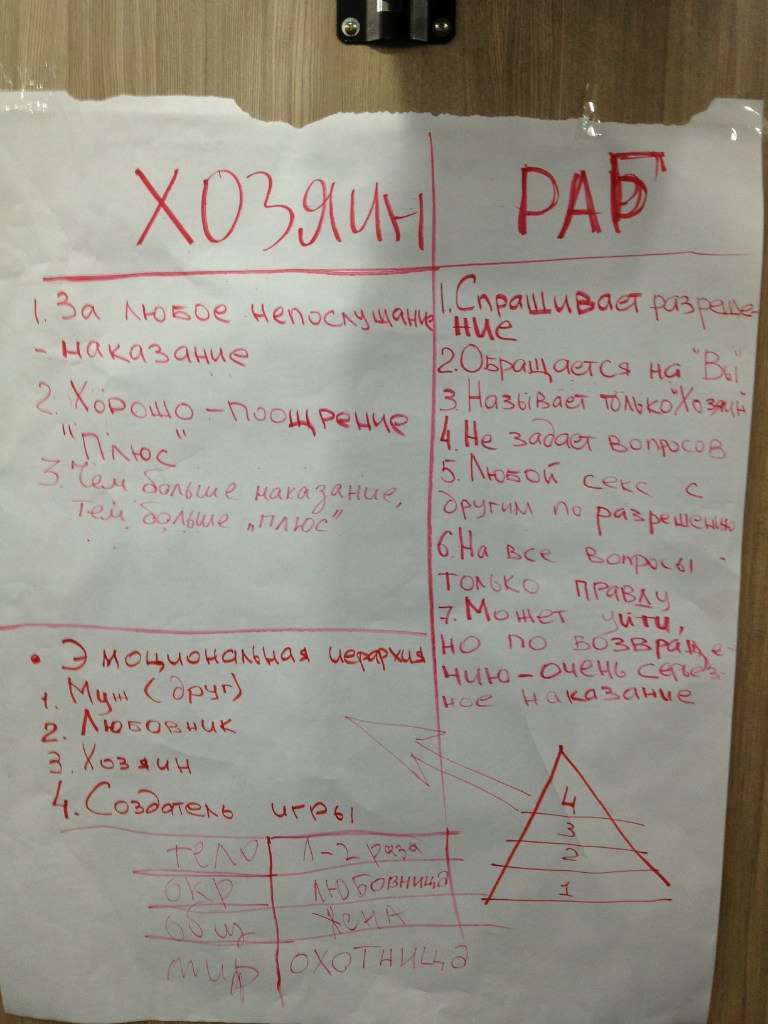 ХОЗЯИН
1. За любое непослущание
- наказание
2. Хорошо - поощрение
"Плюс"
3. Чем больше наказание,
тем больше „плюс"
РАБ
1. Спрашивает разреше-
ние
2. Обращается на "Вы"
3. Называет только "Хозяин"
4. Не задает вопросов
5. Любой секс с
другим по разрешению
6. На все вопросы -
только правду
7. Может уйти,
но по возвраще-
нию - очень серьез-
ное наказание
• Эмоциональная иерархия
1. Муж (друг)
2. Любовник
3. Хозяин
4. Создатель игры
4
3
2
1
тело 1-2 раза
окр любовница
общ жена
мир охотница